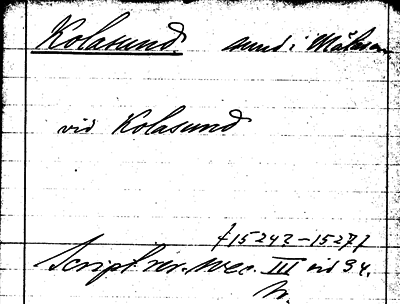 Kolasund. sund i Mälaren
vid Kolasund
[15242–1527]
Script. rer. svec. III sid 94.